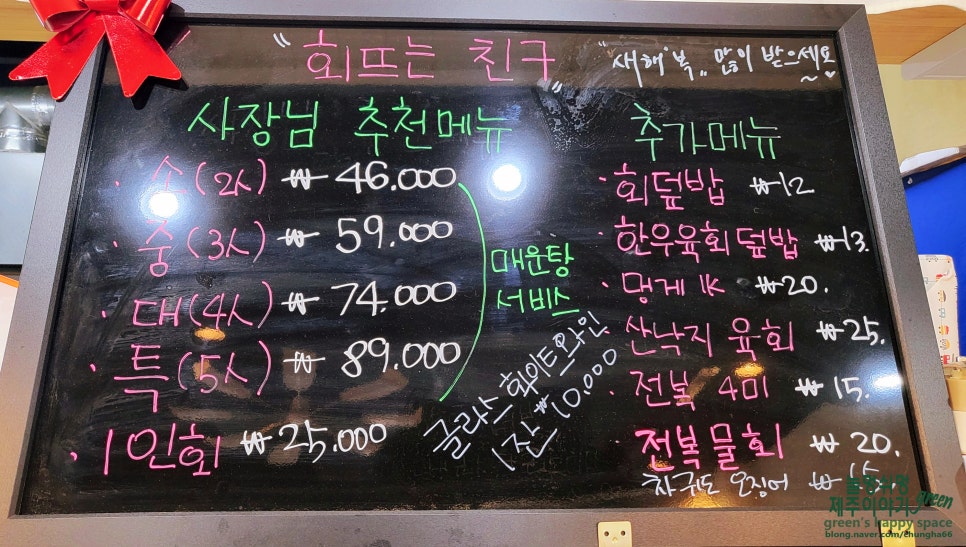 "회뜨는 친구"
"새해 복" 많이 받으세요~♥
사장님 추천메뉴
· 소(2人) ₩ 46.000
· 중(3人) ₩ 59.000
· 대(4人) ₩ 74.000
· 특(5人) ₩ 89.000
· 1인회 ₩ 25.000
매운탕
서비스
글라스 화이트와인
1잔 ₩10.000
추가메뉴
· 회덮밥 ₩12
· 한우육회덮밥 ₩13.
· 멍게 1K ₩20.
· 산낙지 육회 ₩25.
· 전복 4미 ₩15.
· 전복물회 ₩20.
차귀도 오징어 ₩15
제주이야기 green
green's happy space
blong.naver.com/chungha66